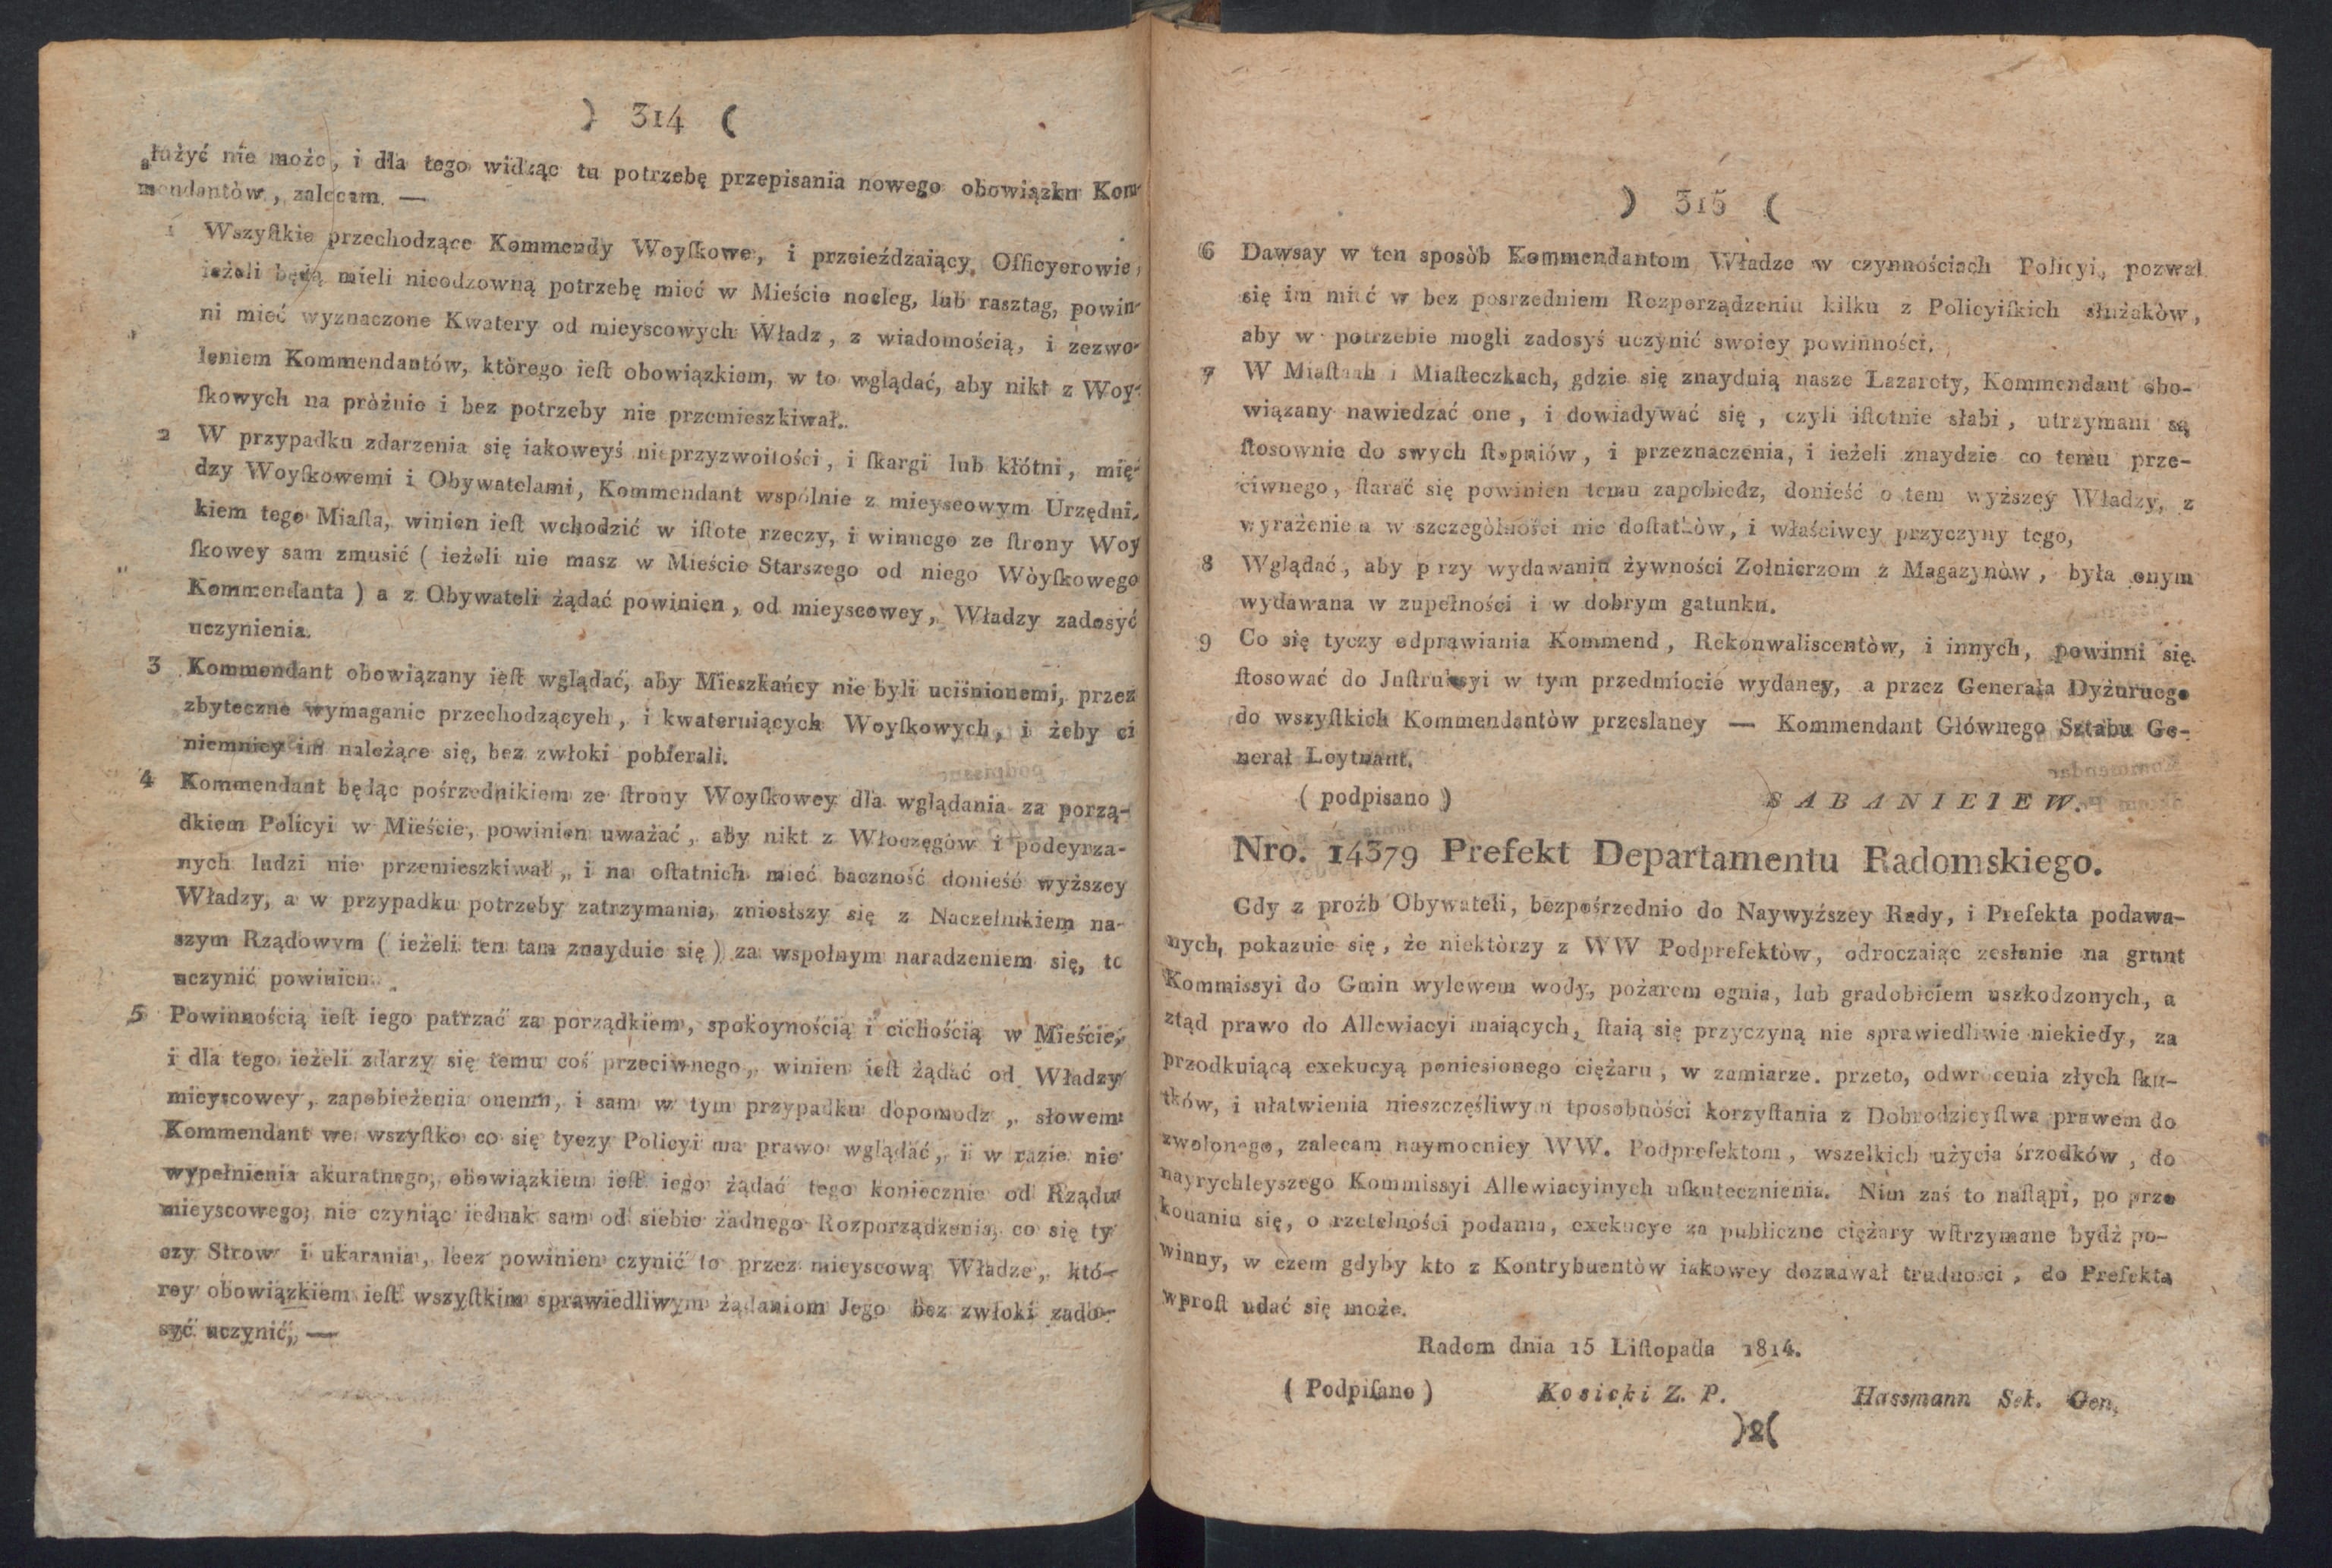 ) 314 (
służyć nie może, i dla tego widząc tu potrzebę przepisania nowego obowiązku Kom-
mendantòw, zalecam. —
1 Wszyſtkie przechodzące Kommendy Woyſkowe, i przeieźdzaiący Officyerowie,
ieżeli będą mieli nieodzowną potrzebę mieć w Mieście nocleg, lub rasztag, powin-
ni mieć wyznaczone Kwatery od mieyscowych Władz, z wiadomością, i zezwo-
leniem Kommendantów, którego ieſt obowiązkiem, w to wglądać, aby nikt z Woy-
ſkowych na pròżnie i bez potrzeby nie przemieszkiwał.
2 W przypadku zdarzenia się iakoweyś nieprzyzwoitości, i ſkargi lub kłótni, mię-
dzy Woyſkowemi i Obywatelami, Kommendant wspólnie z mieyscowym Urzędni-
kiem tego Miaſta, winien ieſt wchodzić w iſtote rzeczy, i winnego ze ſtrony Woy
ſkowey sam zmusić ( ieżeli nie masz w Mieście Starszego od niego Wòyſkowego
Kommendanta ) a z Obywateli żądać powinien, od mieyscowey, Władzy zadosyć
uczynienia.
3 Kommendant obowiązany ieſt wglądać, aby Mieszkańcy nie byli uciśnionemi, przez
zbyteczne wymaganie przechodzących, i kwateruiących Woyſkowych, i żeby ci
niemniey im należące się, bez zwłoki pobierali.
4 Kommendant będąc pośrzednikiem ze ſtrony Woyſkowey dla wglądania za porzą-
dkiem Policyi w Mieście, powinien uważać, aby nikt z Włoczęgów i podeyrza-
nych ludzi nie przemieszkiwał, i na oſtatnich mieć baczność donieść wyższey
Władzy, a w przypadku potrzeby zatrzymania, zniosłszy się z Naczelnikiem na-
szym Rządowym ( ieżeli ten tam znayduie się ) za wspolnym naradzeniem się, to
uczynić powinien.
5 Powinnością ieſt iego patrzać za porządkiem, spokoynością i cichością w Mieście,
i dla tego ieżeli zdarzy się temu coś przeciwnego, winien ieſt żądać od Władzy
mieyscowey, zapobieżenia onemu, i sam w tym przypadku dopomodz, słowem
Kommendant we wszyſtko co się tyczy Policyi ma prawo wglądać, i w razie nie
wypełnienia akuratnego, obowiązkiem ieſt iego żądać tego koniecznie od Rządu
mieyscowego, nie czyniąc iednak sam od siebie żadnego Rozporządzenia, co się ty
czy Strow i ukarania, lecz powinien czynić to przez mieyscową Władze, któ-
rey obowiązkiem ieſt wszyſtkim sprawiedliwym żądaniom Jego bez zwłoki zado-
syć uczynić, —
) 315 (
6 Dawsay w ten sposòb Kommendantom Władze w czynnościach Policyi, pozwal
się im mieć w bez posrzedniem Rozporządzeniu kilku z Policyiſkich służakòw,
aby w potrzebie mogli zadosyś uczynić swoiey powinności.
7 W Miaſtach i Miaſteczkach, gdzie się znaydnią nasze Lazarety, Kommendant obo-
wiązany nawiedzać one, i dowiadywać się, czyli iſtotnie słabi, utrzymani są
ſtosownie do swych ſtopniów, i przeznaczenia, i ieżeli znaydzie co temu prze-
ciwnego, ſtarać się powinien temu zapobiedz, donieść o tem wyższey Władzy, z
wyrażeniem w szczególności nie doſtatków, i właściwey przyczyny tego,
8 Wglądać, aby przy wydawaniu żywności Zołnierzom z Magazynòw, była onym
wydawana w zupełności i w dobrym gatunku.
9 Co się tyczy odprawiania Kommend, Rekonwaliscentòw, i innych, powinni się
ſtosować do Jnſtrukcyi w tym przedmiocie wydaney, a przez Generała Dyżurnego
do wszyſtkich Kommendantòw przesłaney — Kommendant Głównego Sztabu Ge-
nerał Leytnant.
( podpisano ) SABANIEIEW.
Nro. 14379 Prefekt Departamentu Radomskiego.
Gdy z proźb Obywateli, bezpośrzednio do Naywyższey Rady, i Prefekta podawa-
nych, pokazuie się, że niektòrzy z WW Podprefektòw, odroczaiąc zesłanie na grunt
Kommissyi do Gmin wylewem wody, pożarem ognia, lub gradobiciem uszkodzonych, a
ztąd prawo do Allewiacyi maiących, ſtaią się przyczyną nie sprawiedliwie niekiedy, za
przodkuiącą exekucyą poniesionego ciężaru, w zamiarze. przeto, odwrócenia złych ſku-
tków, i ułatwienia nieszczęśliwym sposobności korzyſtania z Dobrodzieyſtwa prawem do
zwolonego, zalecam naymocniey WW. Podprefektom, wszelkich użycia śrzodków, do
nayrychleyszego Kommissyi Allewiacyinych uſkutecznienia. Nim zaś to naſtąpi, po prze
konaniu się, o rzetelności podania, exekucye za publiczne ciężary wſtrzymane bydź po-
winny, w czem gdyby kto z Kontrybuentòw iakowey doznawał trudności, do Prefekta
wproſt udać się może.
Radom dnia 15 Liſtopada 1814.
( Podpiſano ) Kosicki Z. P. Hassmann Sek. Gen.
)2(